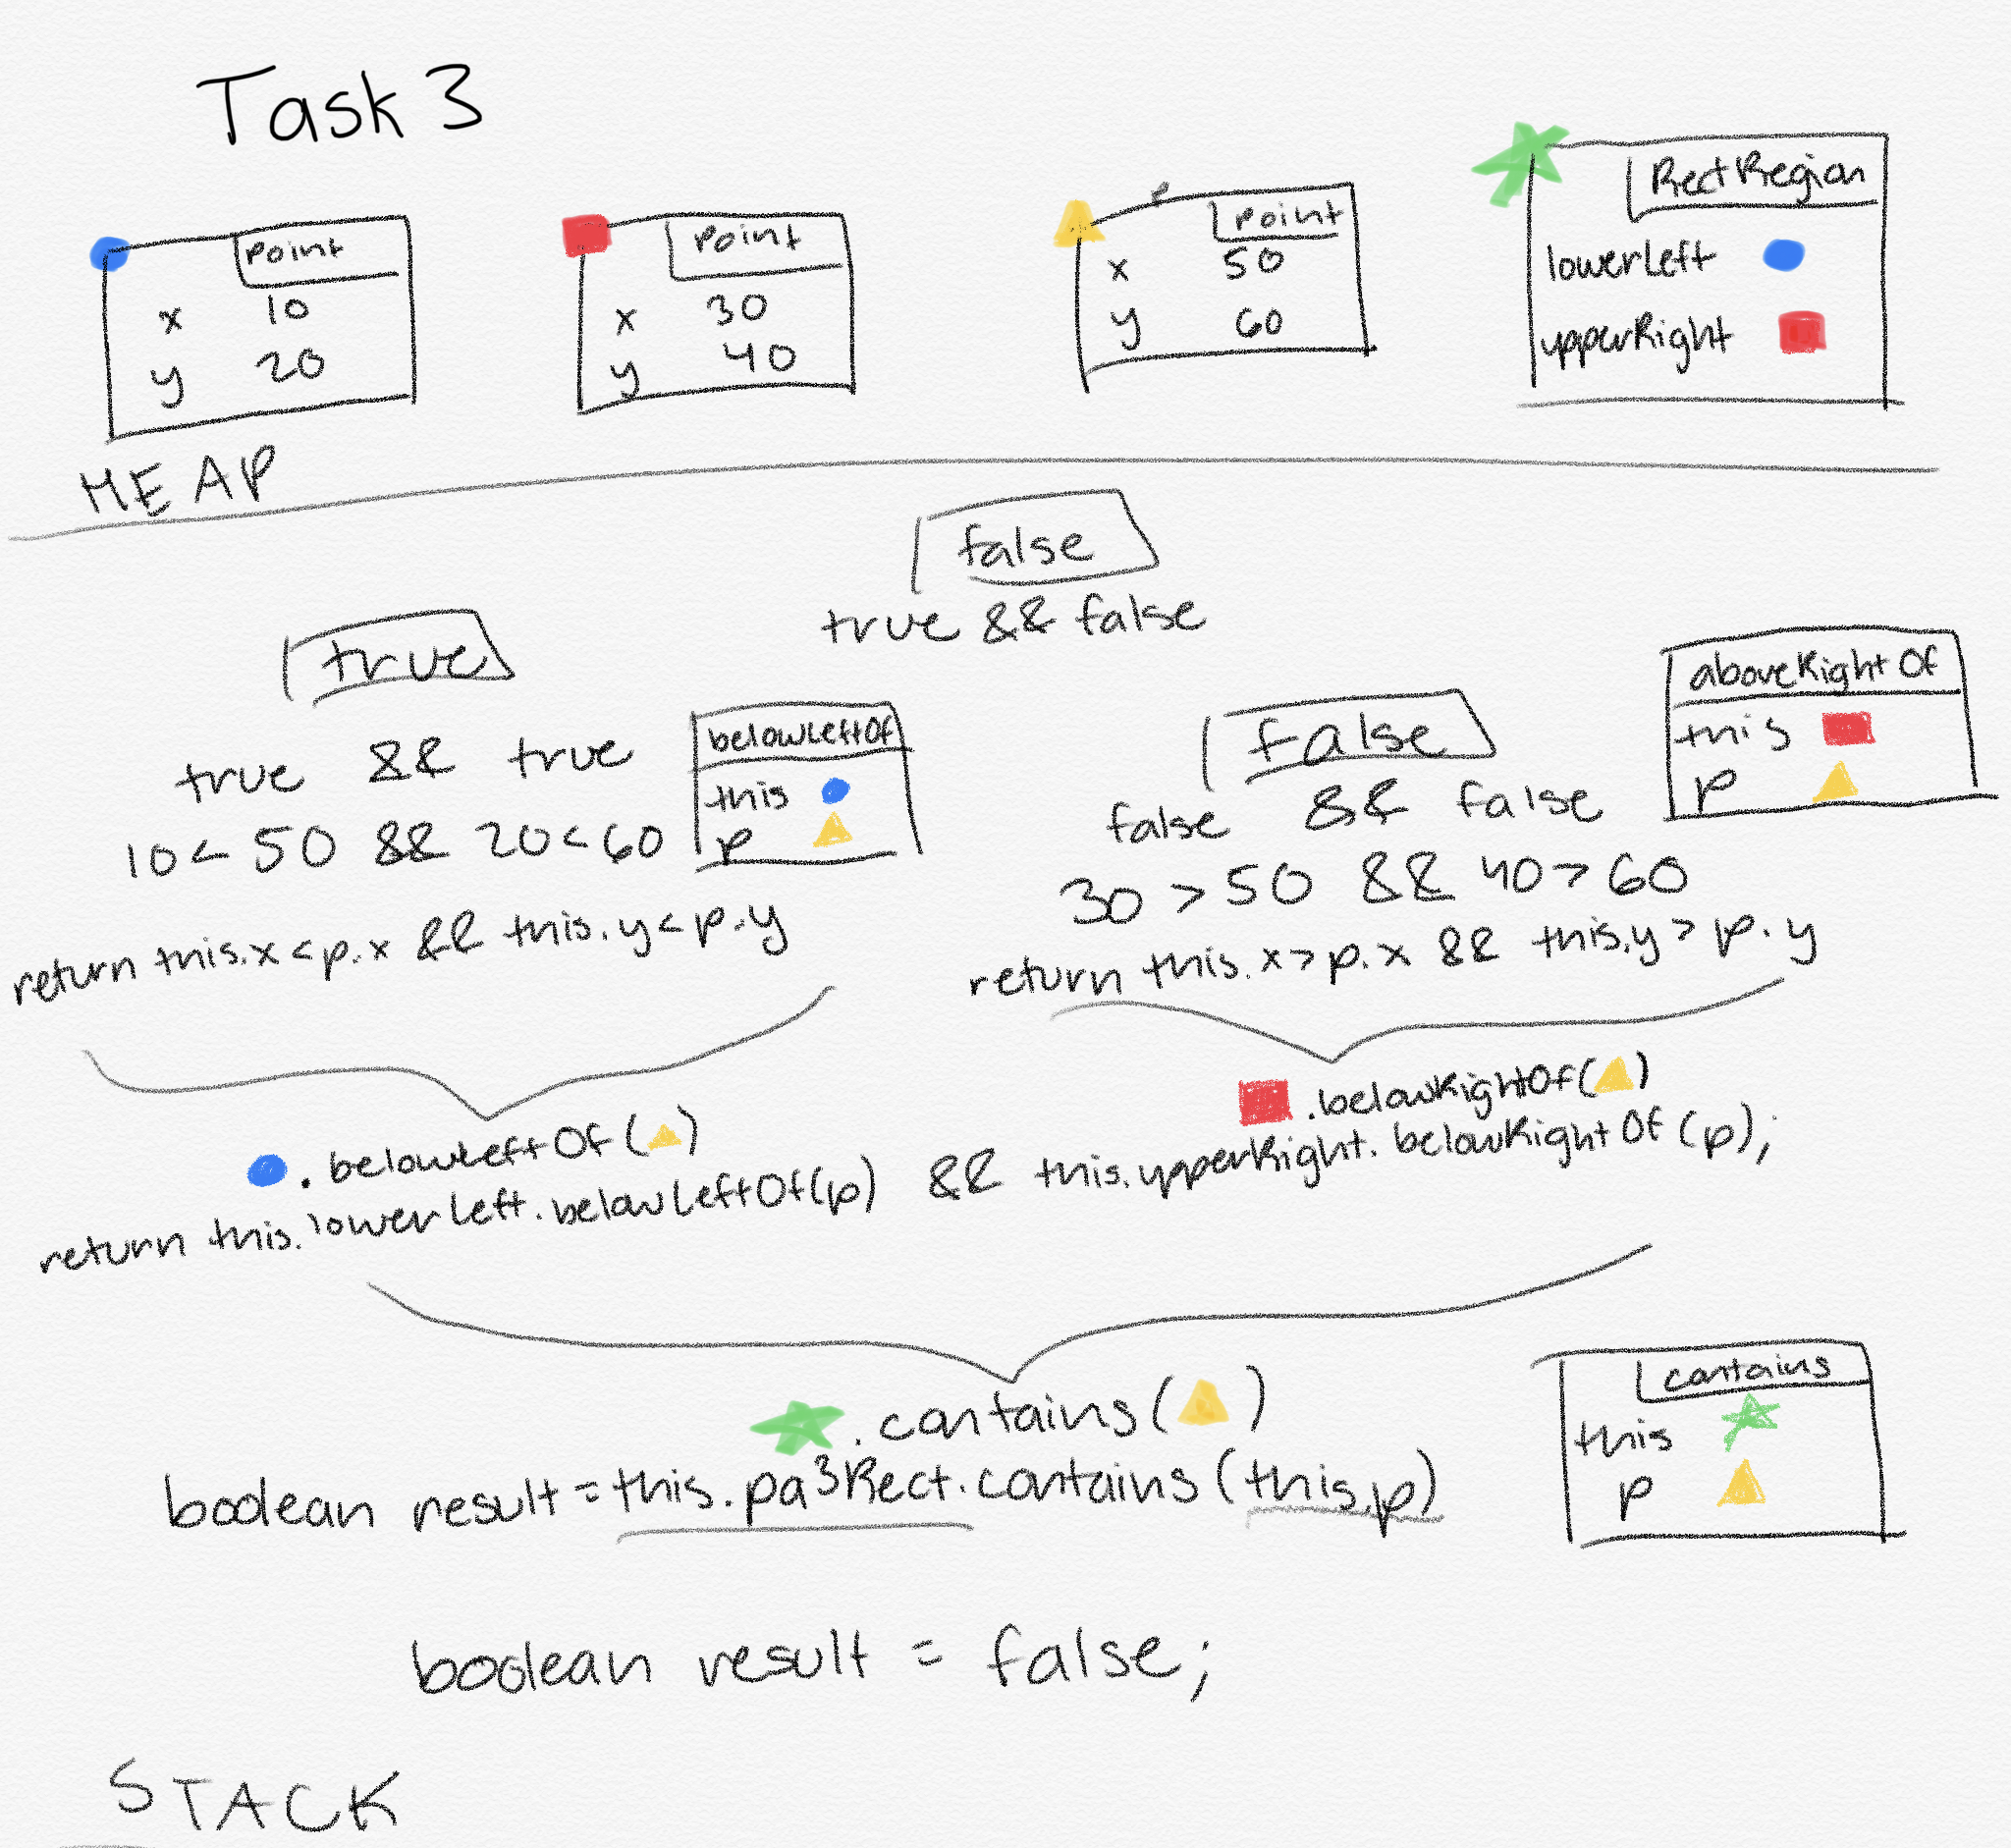 Task 3
Point
x 10
y 20
Point
x 30
y 40
P
Point
x 50
y 60
RectRegion
lowerLeft
upperRight
HEAP
false
true && false
true
true && true
10 < 50 && 20 < 60
return this.x < p.x && this.y < p.y
belowLeftOf
this
p
false
false && false
30 > 50 && 40 > 60
return this.x > p.x && this.y > p.y
aboveRightOf
this
p
. belowLeftOf ( )
.belowRightOf( )
return this.lowerLeft.belowLeftOf(p) && this.upperRight.belowRightOf(p);
.contains( )
boolean result = this.pa3Rect.contains(this.p)
contains
this
p
boolean result = false;
STACK